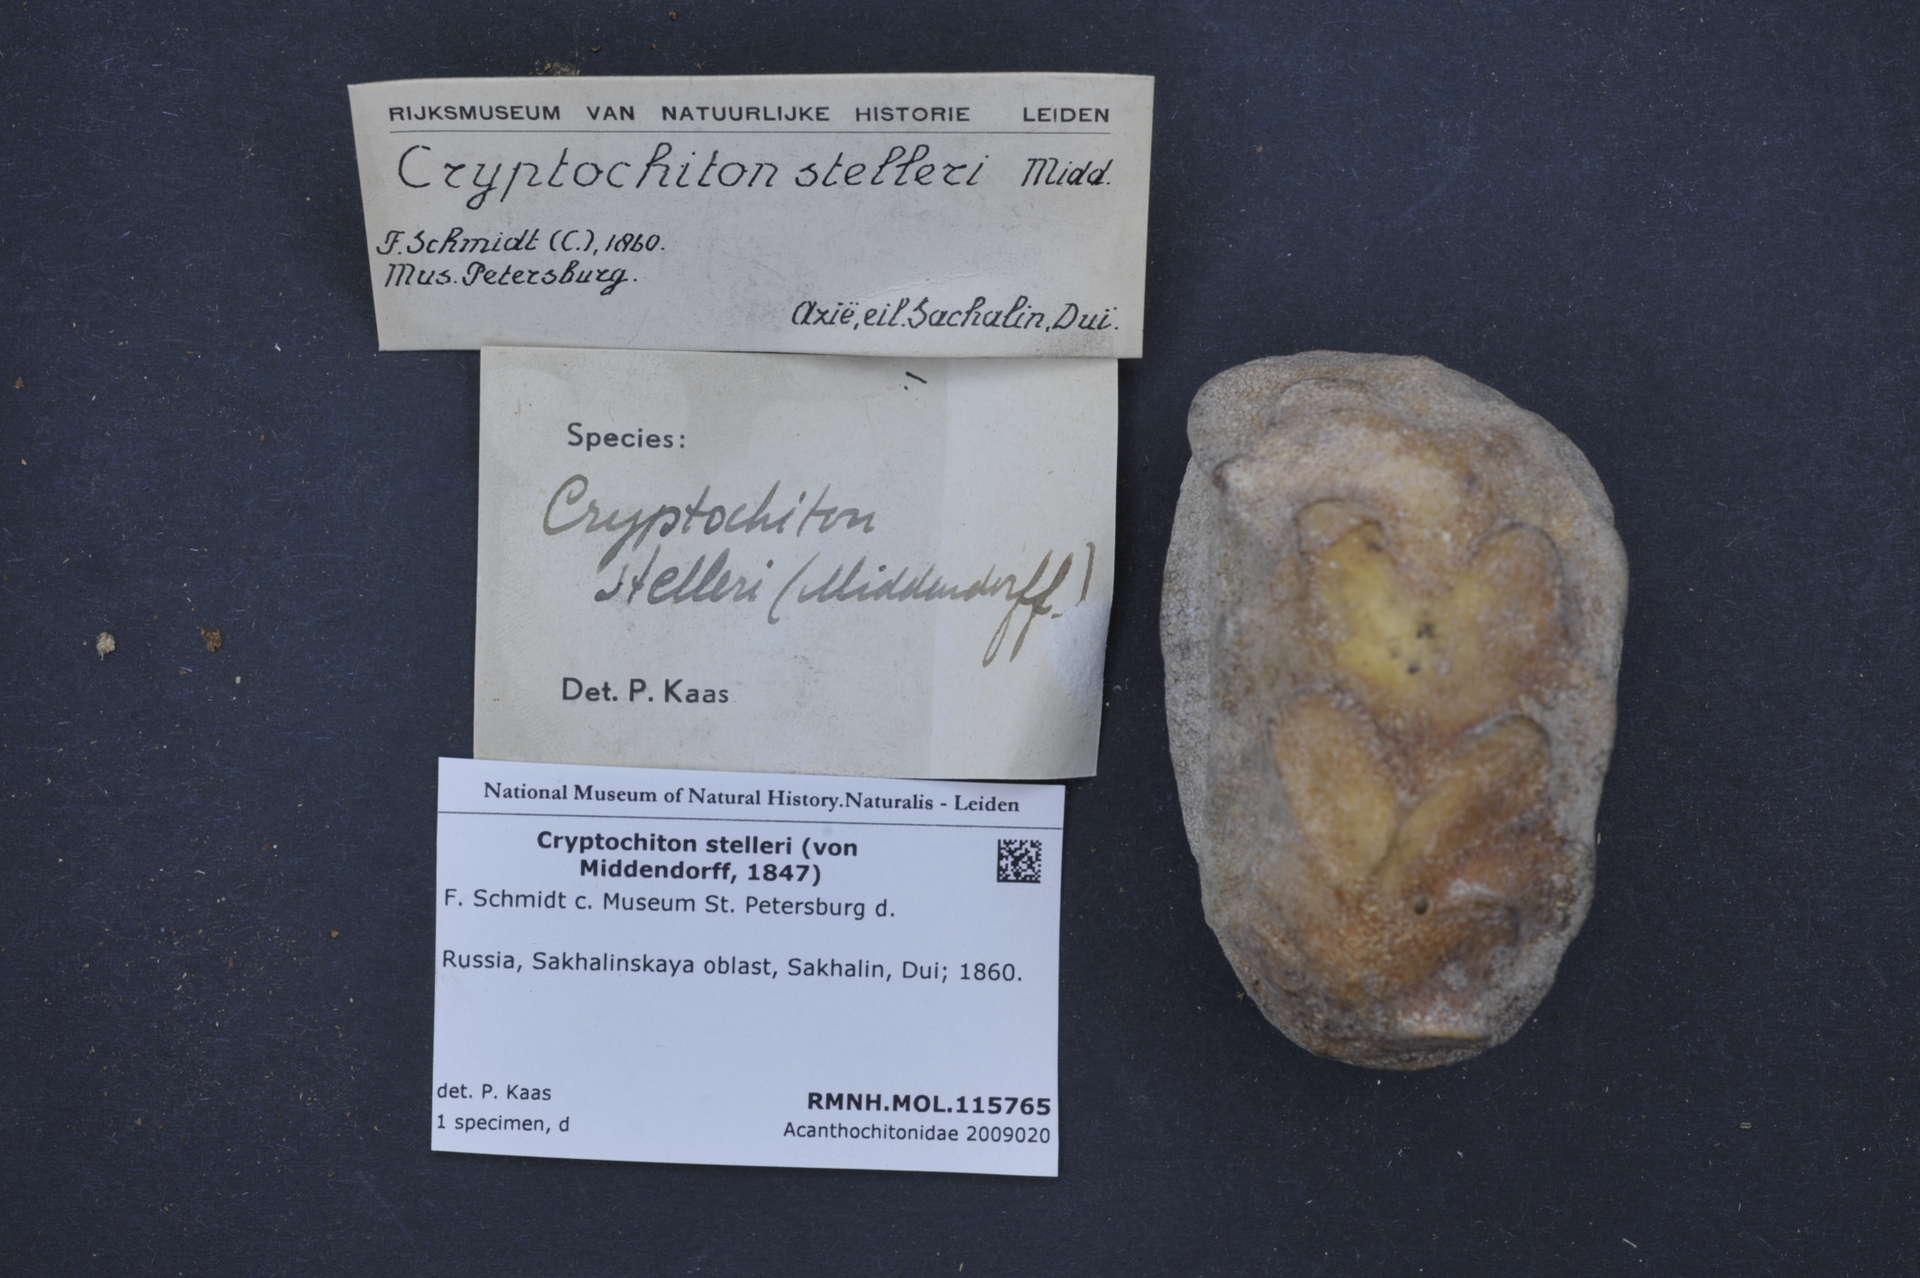 RIJKSMUSEUM VAN NATUURLIJKE HISTORIE LEIDEN
Cryptochiton stelleri Midd.
F. Schmidt (C.), 1860.
Mus. Petersburg.
Azië, eil. Sachalin, Dui.
Species:
Cryptochiton
stelleri (Middendorff.)
Det. P. Kaas
National Museum of Natural History.Naturalis - Leiden
Cryptochiton stelleri (von
Middendorff, 1847)
F. Schmidt c. Museum St. Petersburg d.
Russia, Sakhalinskaya oblast, Sakhalin, Dui; 1860.
det. P. Kaas
1 specimen, d
RMNH.MOL.115765
Acanthochitonidae 2009020